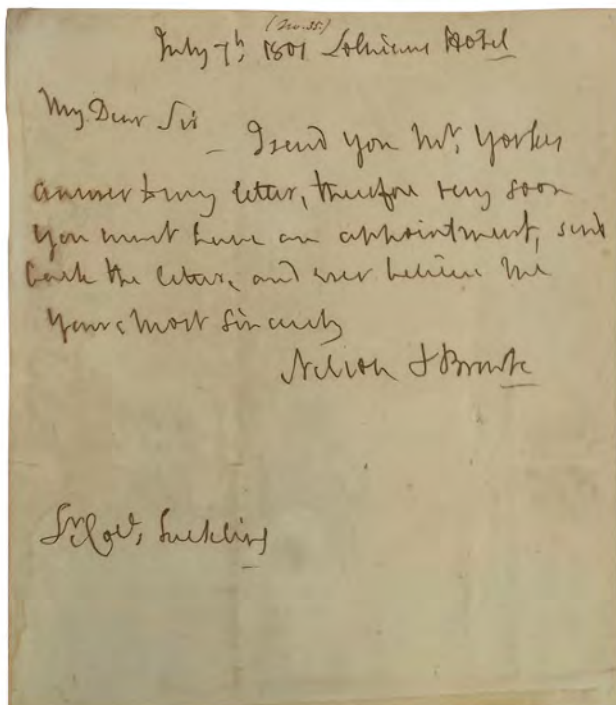 (No. 35.)
July 7th: 1801 Lothians Hotel
My Dear Sir
_ I send you Mr. Yorkes
answer to my letter, therefore very soon
you must have an appointment, send
back the letter, and ever believe me
Yours most sincerely
Nelson & Bronte
Col., Suckling